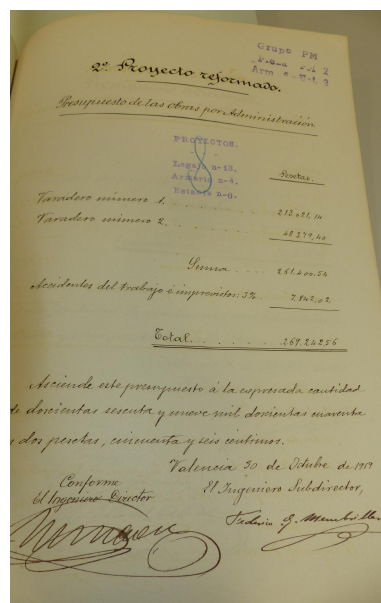 Grupo PM
2º Proyecto reformado.
Presupuesto de las obras por Administración
PROYECTOS.
Legajo n-13.
Armario n-4.
Estante n-6.
8
Pesetas.
Varadero número 1. 213.021,14
Varadero número 2. 48.379,40
Suma 261.400.54
Accidentes del trabajo é imprevistos: 3% 7.842,02
Total. 269.242,56
Asciende este presupuesto á la expresada cantidad
de doscientas sesenta y nueve mil doscientas cuarenta
y dos pesetas, cincuenta y seis céntimos.
Valencia 30 de Octubre de 1919
Conforme
El Ingeniero Director
El Ingeniero Subdirector,
Federico G.